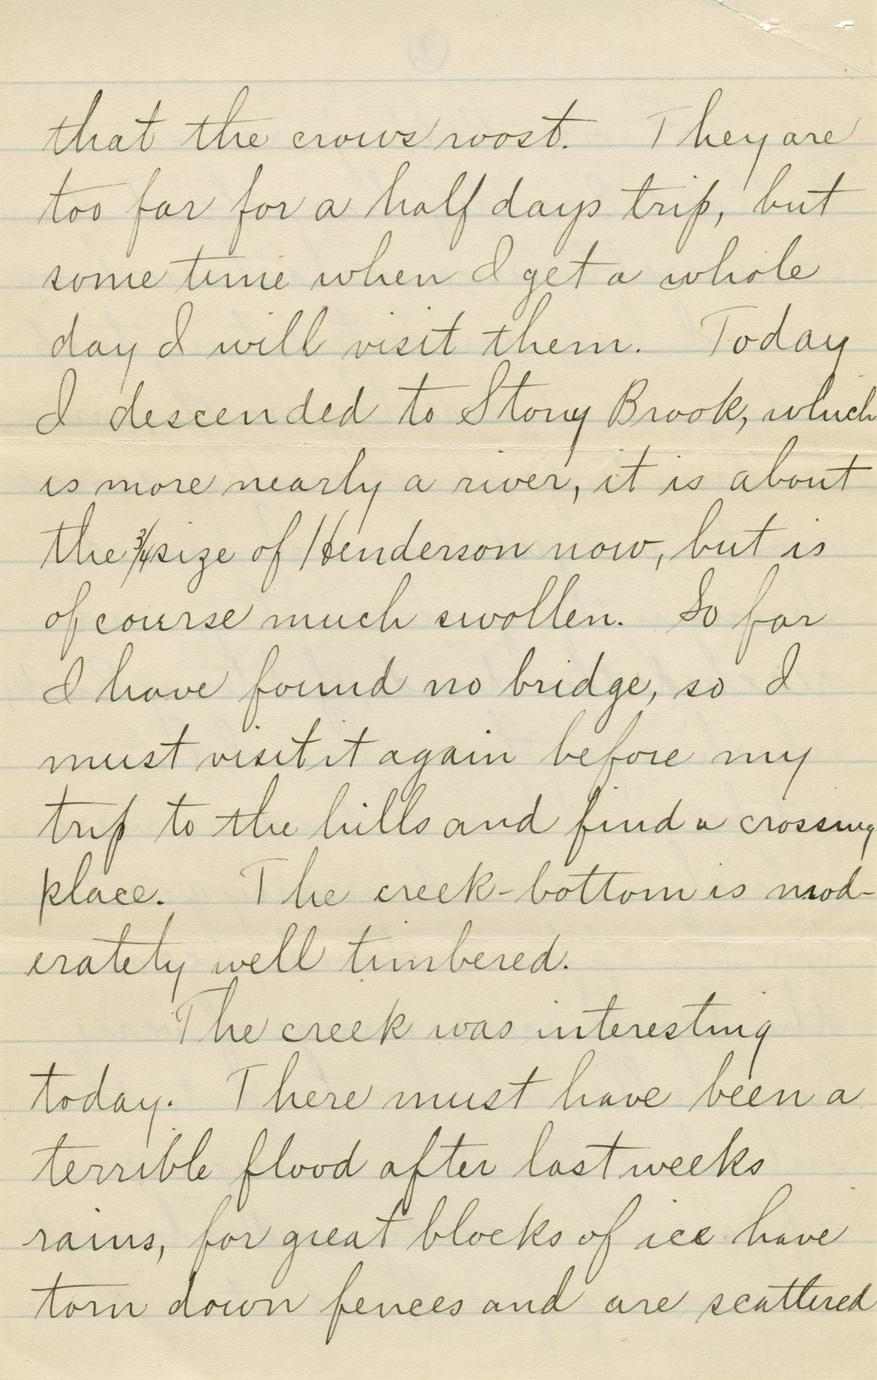 that the crows roost. They are
too far for a half days trip, but
some time when I get a whole
day I will visit them. Today
I descended to Stony Brook, which
is more nearly a river, it is about
the 3/4 size of Henderson now, but is
of course much swollen. So far
I have found no bridge, so I
must visit it again before my
trip to the hills and find a crossing
place. The creek-bottom is mod-
erately well timbered.
The creek was interesting
today. There must have been a
terrible flood after last weeks
rains, for great blocks of ice have
torn down fences and are scattered